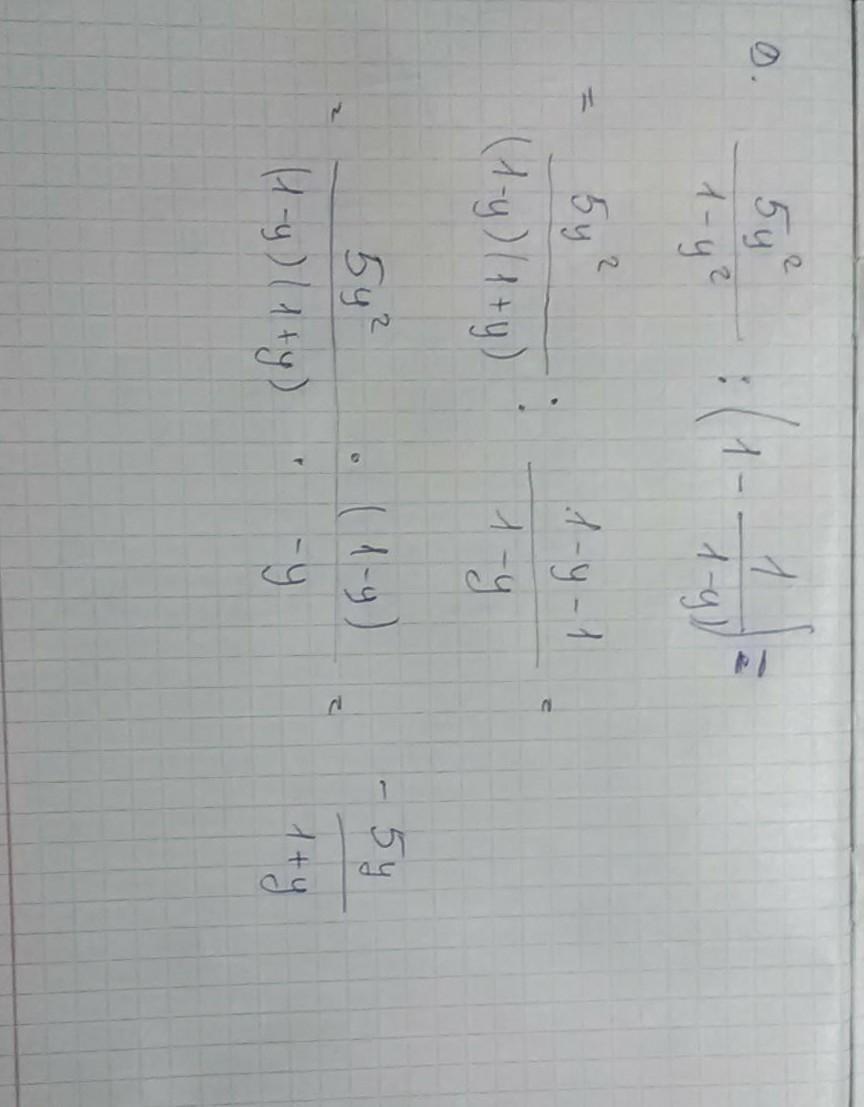 0. 5y²/(1-y²) : (1 - 1/(1-y)) =
= 5y²/((1-y)(1+y)) : (1-y-1)/(1-y) =
= (5y² · (1-y))/((1-y)(1+y) · -y) = - 5y/(1+y)